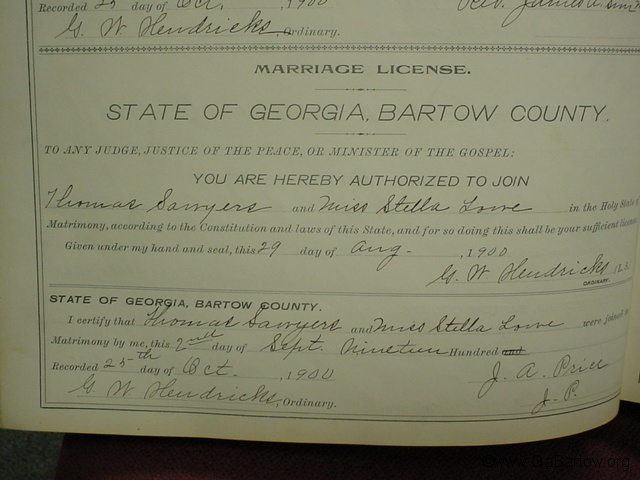 Recorded 25 day of Oct. , 1900
Rev. James A.
G. W. Hendricks, Ordinary.
MARRIAGE LICENSE.
STATE OF GEORGIA, BARTOW COUNTY.
TO ANY JUDGE, JUSTICE OF THE PEACE, OR MINISTER OF THE GOSPEL:
YOU ARE HEREBY AUTHORIZED TO JOIN
Thomas Sawyers and Miss Stella Lowe in the Holy State of
Matrimony, according to the Constitution and laws of this State, and for so doing this shall be your sufficient license.
Given under my hand and seal, this 29 day of Aug- , 1900
G. W. Hendricks (L. S.)
ORDINARY.
STATE OF GEORGIA, BARTOW COUNTY.
I certify that Thomas Sawyers and Miss Stella Lowe were joined in
Matrimony by me, this 2nd day of Sept. Nineteen Hundred and
Recorded 25th day of Oct. , 1900
J. A. Price
G. W. Hendricks, Ordinary.
J. P.
www.GaBartow.org